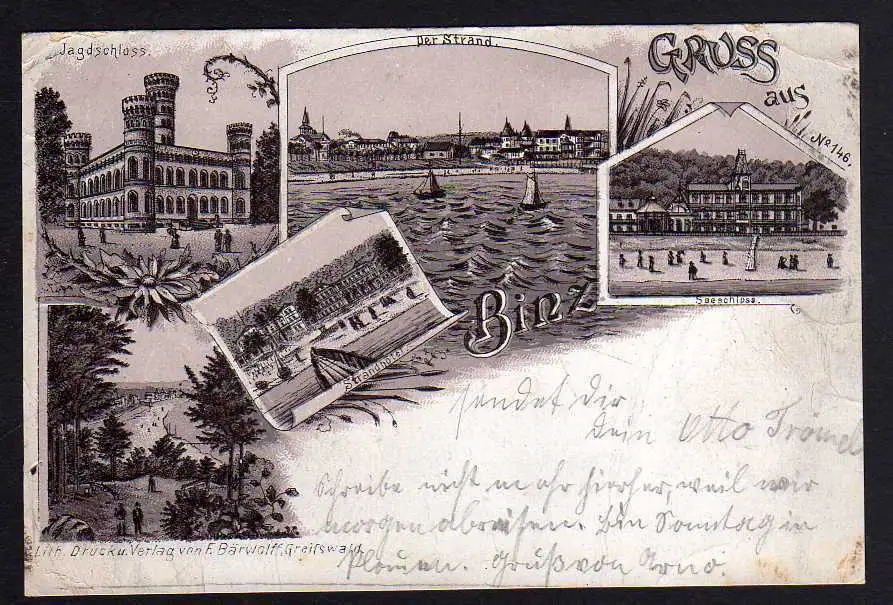 Jagdschloss.
Der Strand.
Gruss
aus
No 146.
Binz
Seeschloss.
Strandhotel
Lith. Druck u. Verlag von F. Bärwolff, Greifswald.
sendet dir
dein Otto Trömel
Schreibe nicht mehr hierher, weil wir
morgen abreisen. Bin Sonntag in
Plauen. Gruß von Arno.